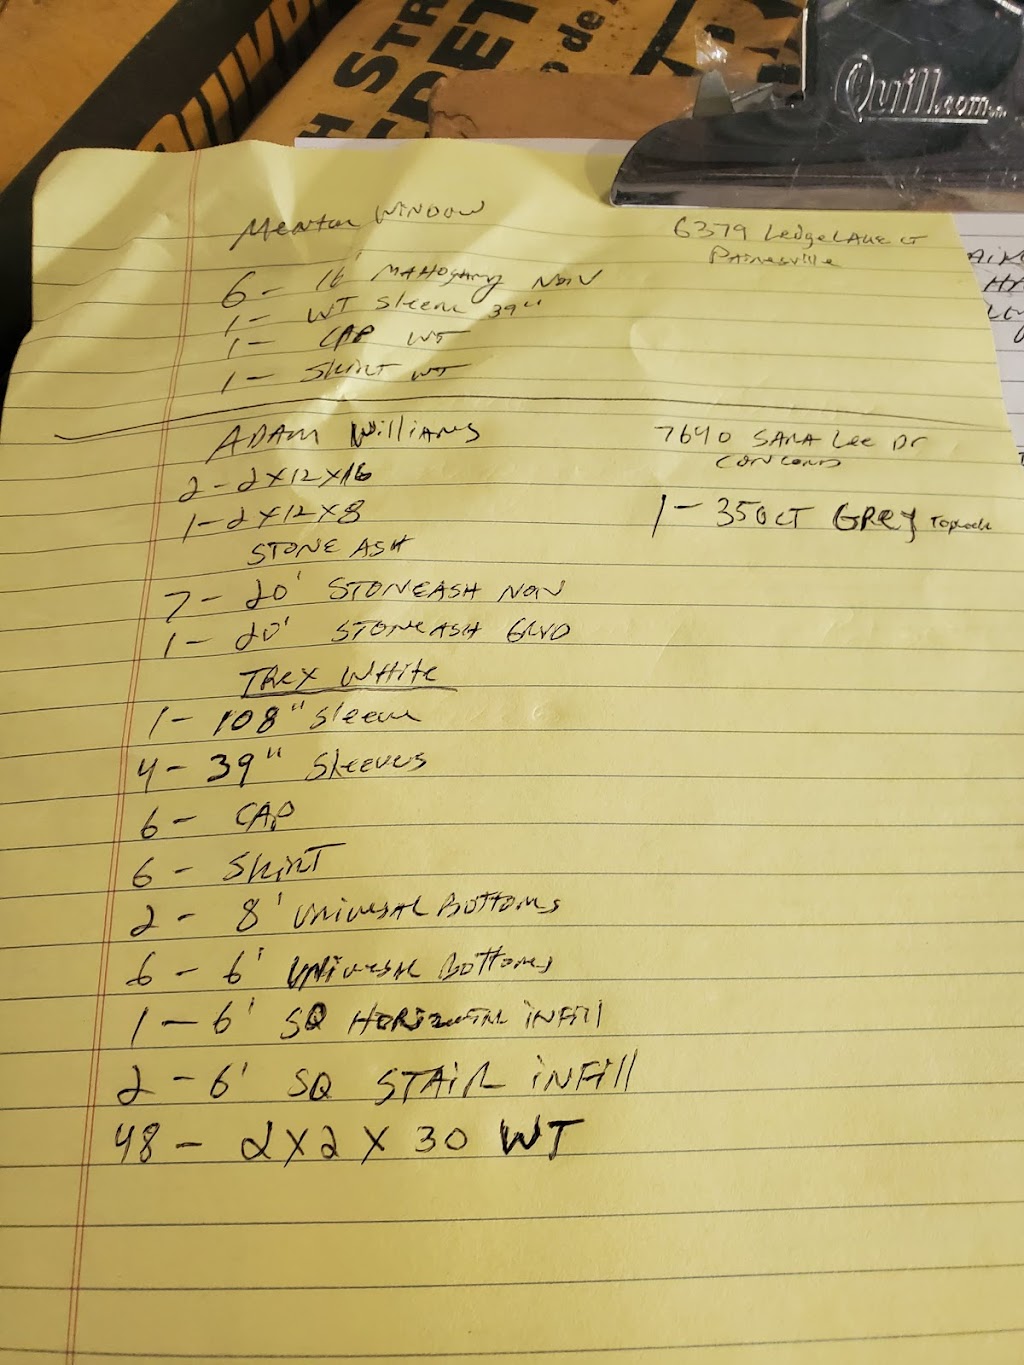 Quill.com
Mentor WINDOW
6379 LedgeLAKE CT
PAINESVILLE
6 - 16' MAHOGANY NON
1 - WT Sleeve 39"
1 - CAP WT
1 - SKIRT WT
ADAM Williams
7640 SARA Lee Dr
CONCORD
2 - 2X12X16
1 - 2X12X8
1 - 350CT GREY Toploc
STONE ASH
7 - 20' STONEASH NON
1 - 20' STONEASH GRVD
TREX WHite
1 - 108" Sleeve
4 - 39" Sleeves
6 - CAP
6 - SKIRT
2 - 8' Universal Bottoms
6 - 6' Universal Bottoms
1 - 6' SQ HORIZONTAL iNFill
2 - 6' SQ STAIR iNFill
48 - 2X2X30 WT